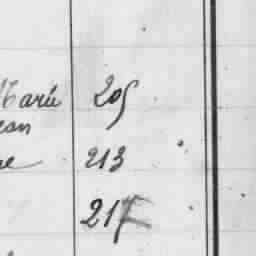 Marie 205
ean
ne 213
217